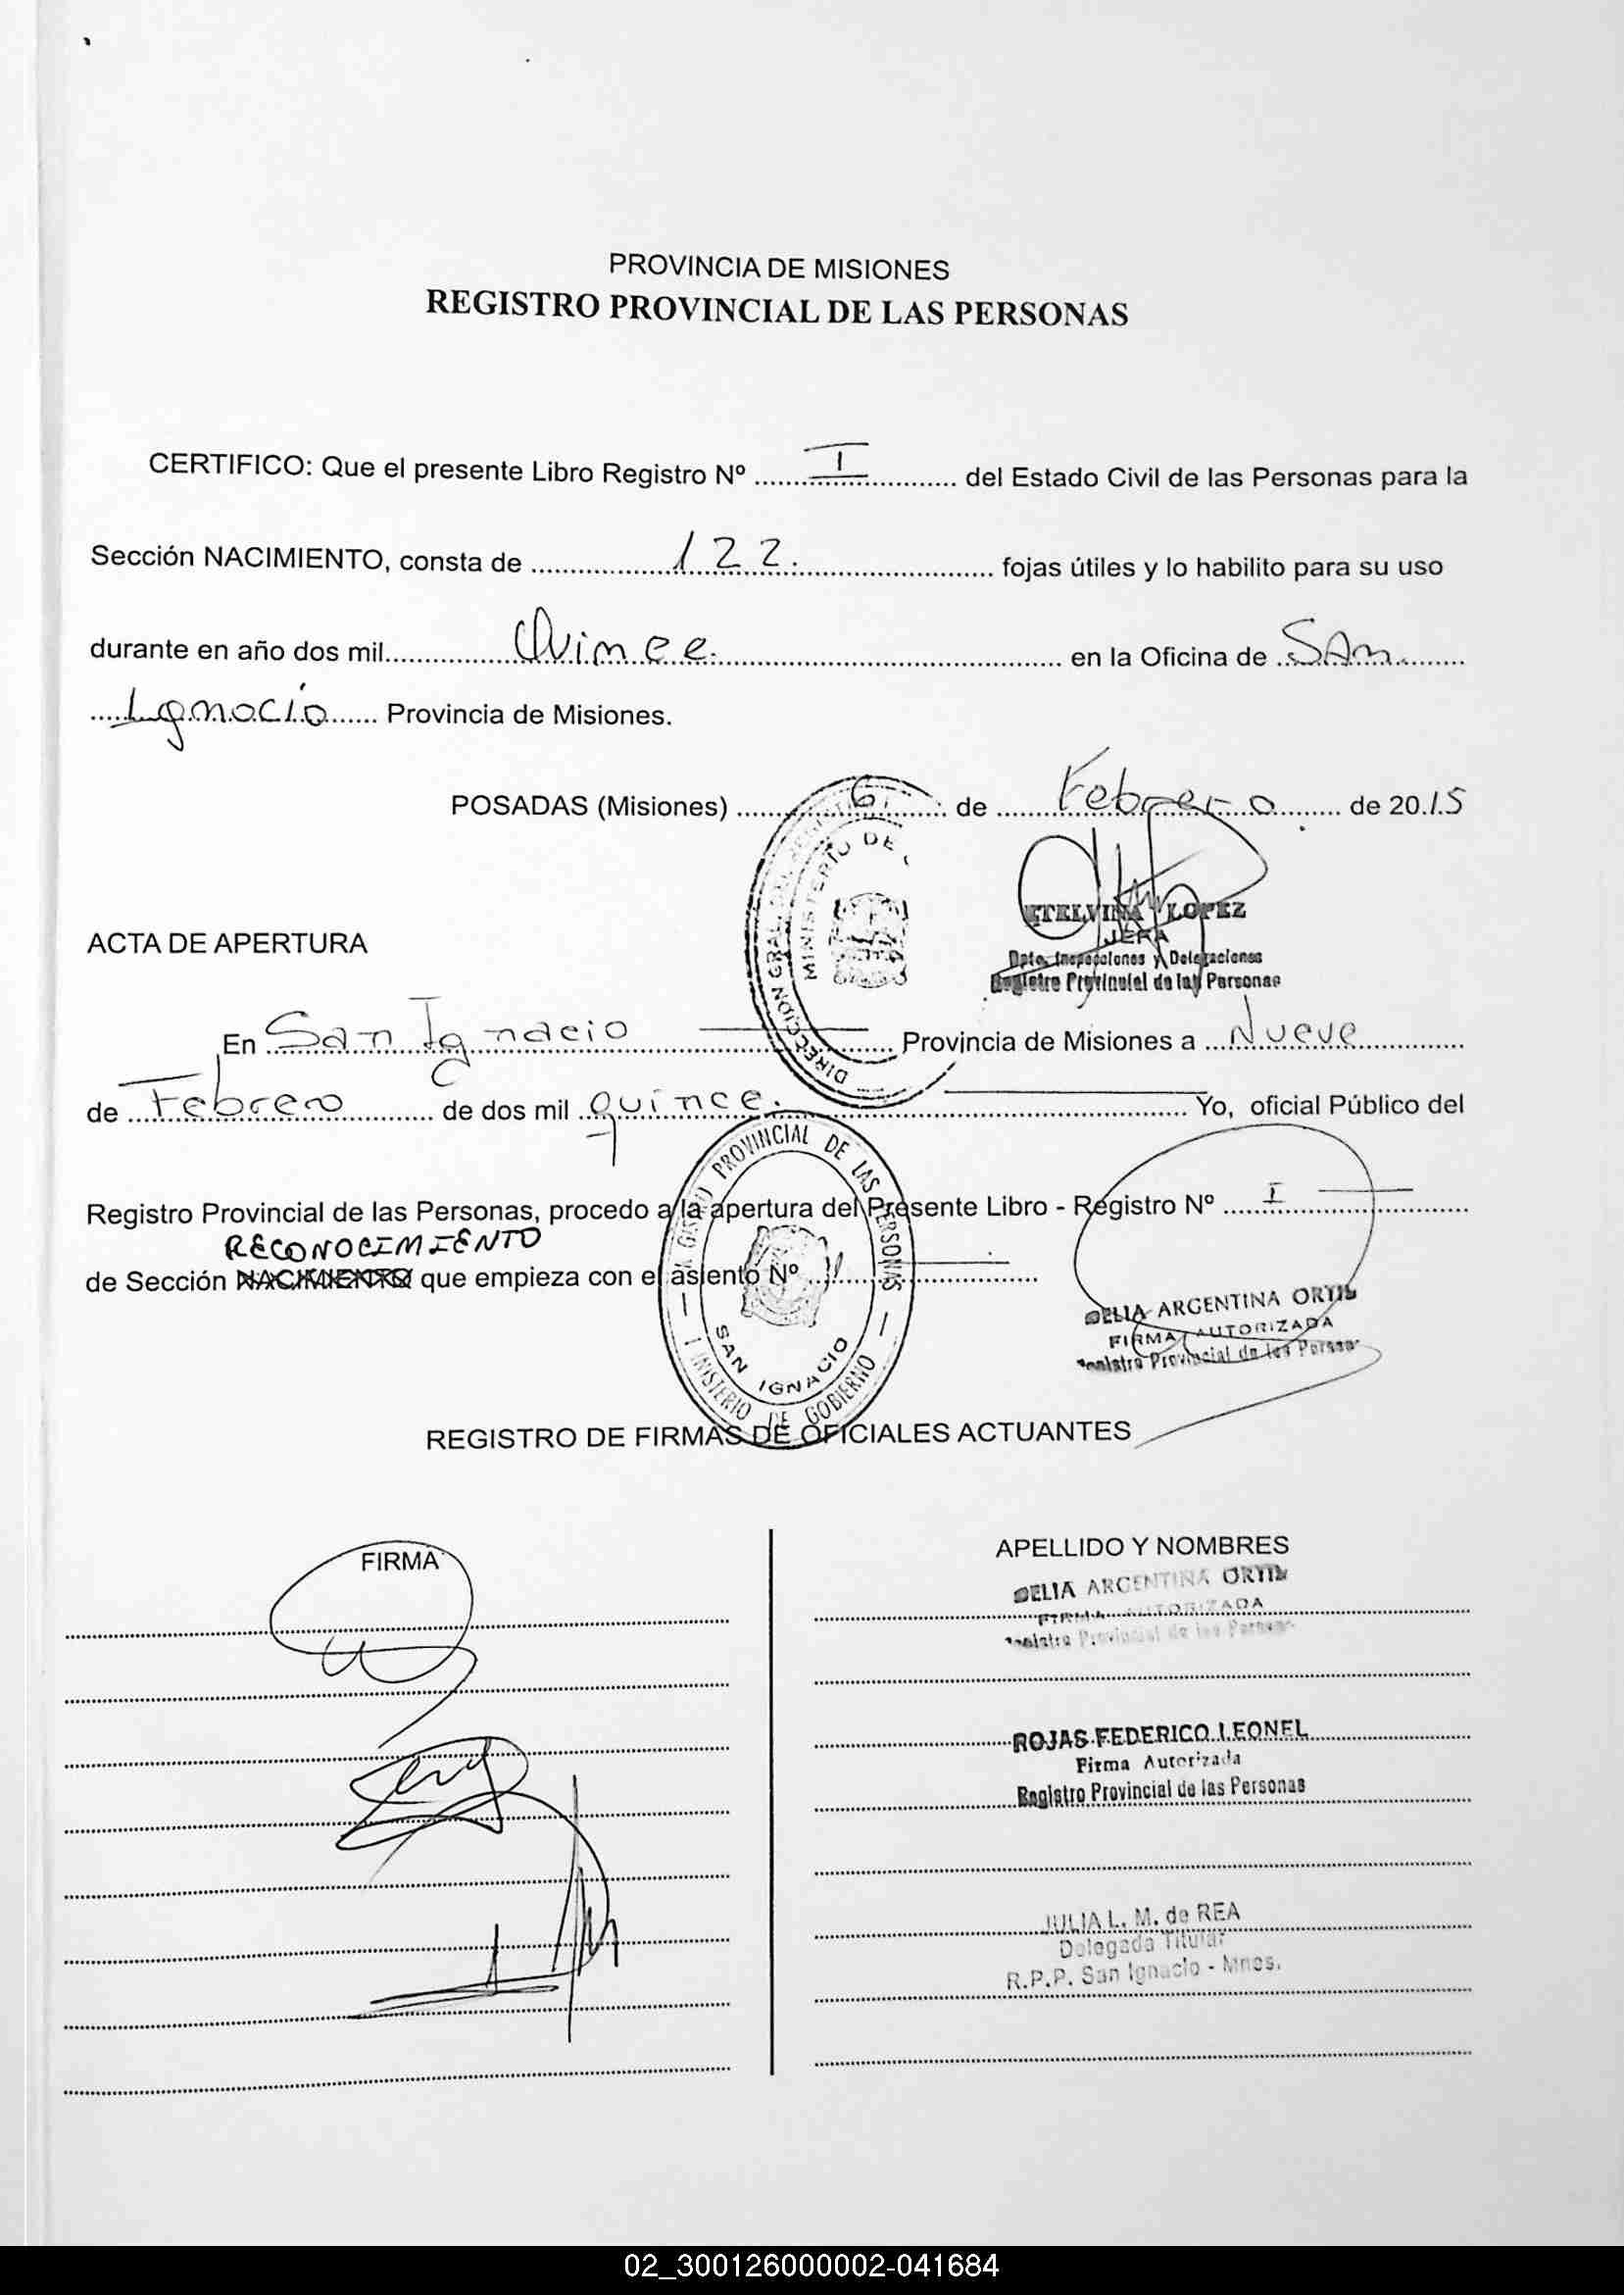 PROVINCIA DE MISIONES
REGISTRO PROVINCIAL DE LAS PERSONAS
CERTIFICO: Que el presente Libro Registro Nº I del Estado Civil de las Personas para la
Sección NACIMIENTO, consta de 122. fojas útiles y lo habilito para su uso
durante en año dos mil Quince. en la Oficina de SAn
Ignacio Provincia de Misiones.
POSADAS (Misiones) 6 de Febrero de 2015
MINISTERIO DE
DIRECCION GRAL. DEL
ETELVINA LOPEZ
JEFA
Dpto. Inspecciones y Delegaciones
Registro Provincial de las Personas
ACTA DE APERTURA
En San Ignacio Provincia de Misiones a Nueve
de Febrero de dos mil quince. Yo, oficial Público del
Registro Provincial de las Personas, procedo a la apertura del Presente Libro - Registro Nº I
RECONOCIMIENTO
de Sección NACIMIENTO que empieza con el asiento Nº 1
PROVINCIAL DE LAS PERSONAS
SAN IGNACIO
MINISTERIO DE GOBIERNO
DELIA ARGENTINA ORTIZ
FIRMA AUTORIZADA
Registro Provincial de las Personas
REGISTRO DE FIRMAS DE OFICIALES ACTUANTES
FIRMA
APELLIDO Y NOMBRES
DELIA ARGENTINA ORTIZ
FIRMA AUTORIZADA
Registro Provincial de las Personas
ROJAS FEDERICO LEONEL
Firma Autorizada
Registro Provincial de las Personas
JULIA L. M. de REA
Delegada Titular
R.P.P. San Ignacio - Mnes.
02_300126000002-041684